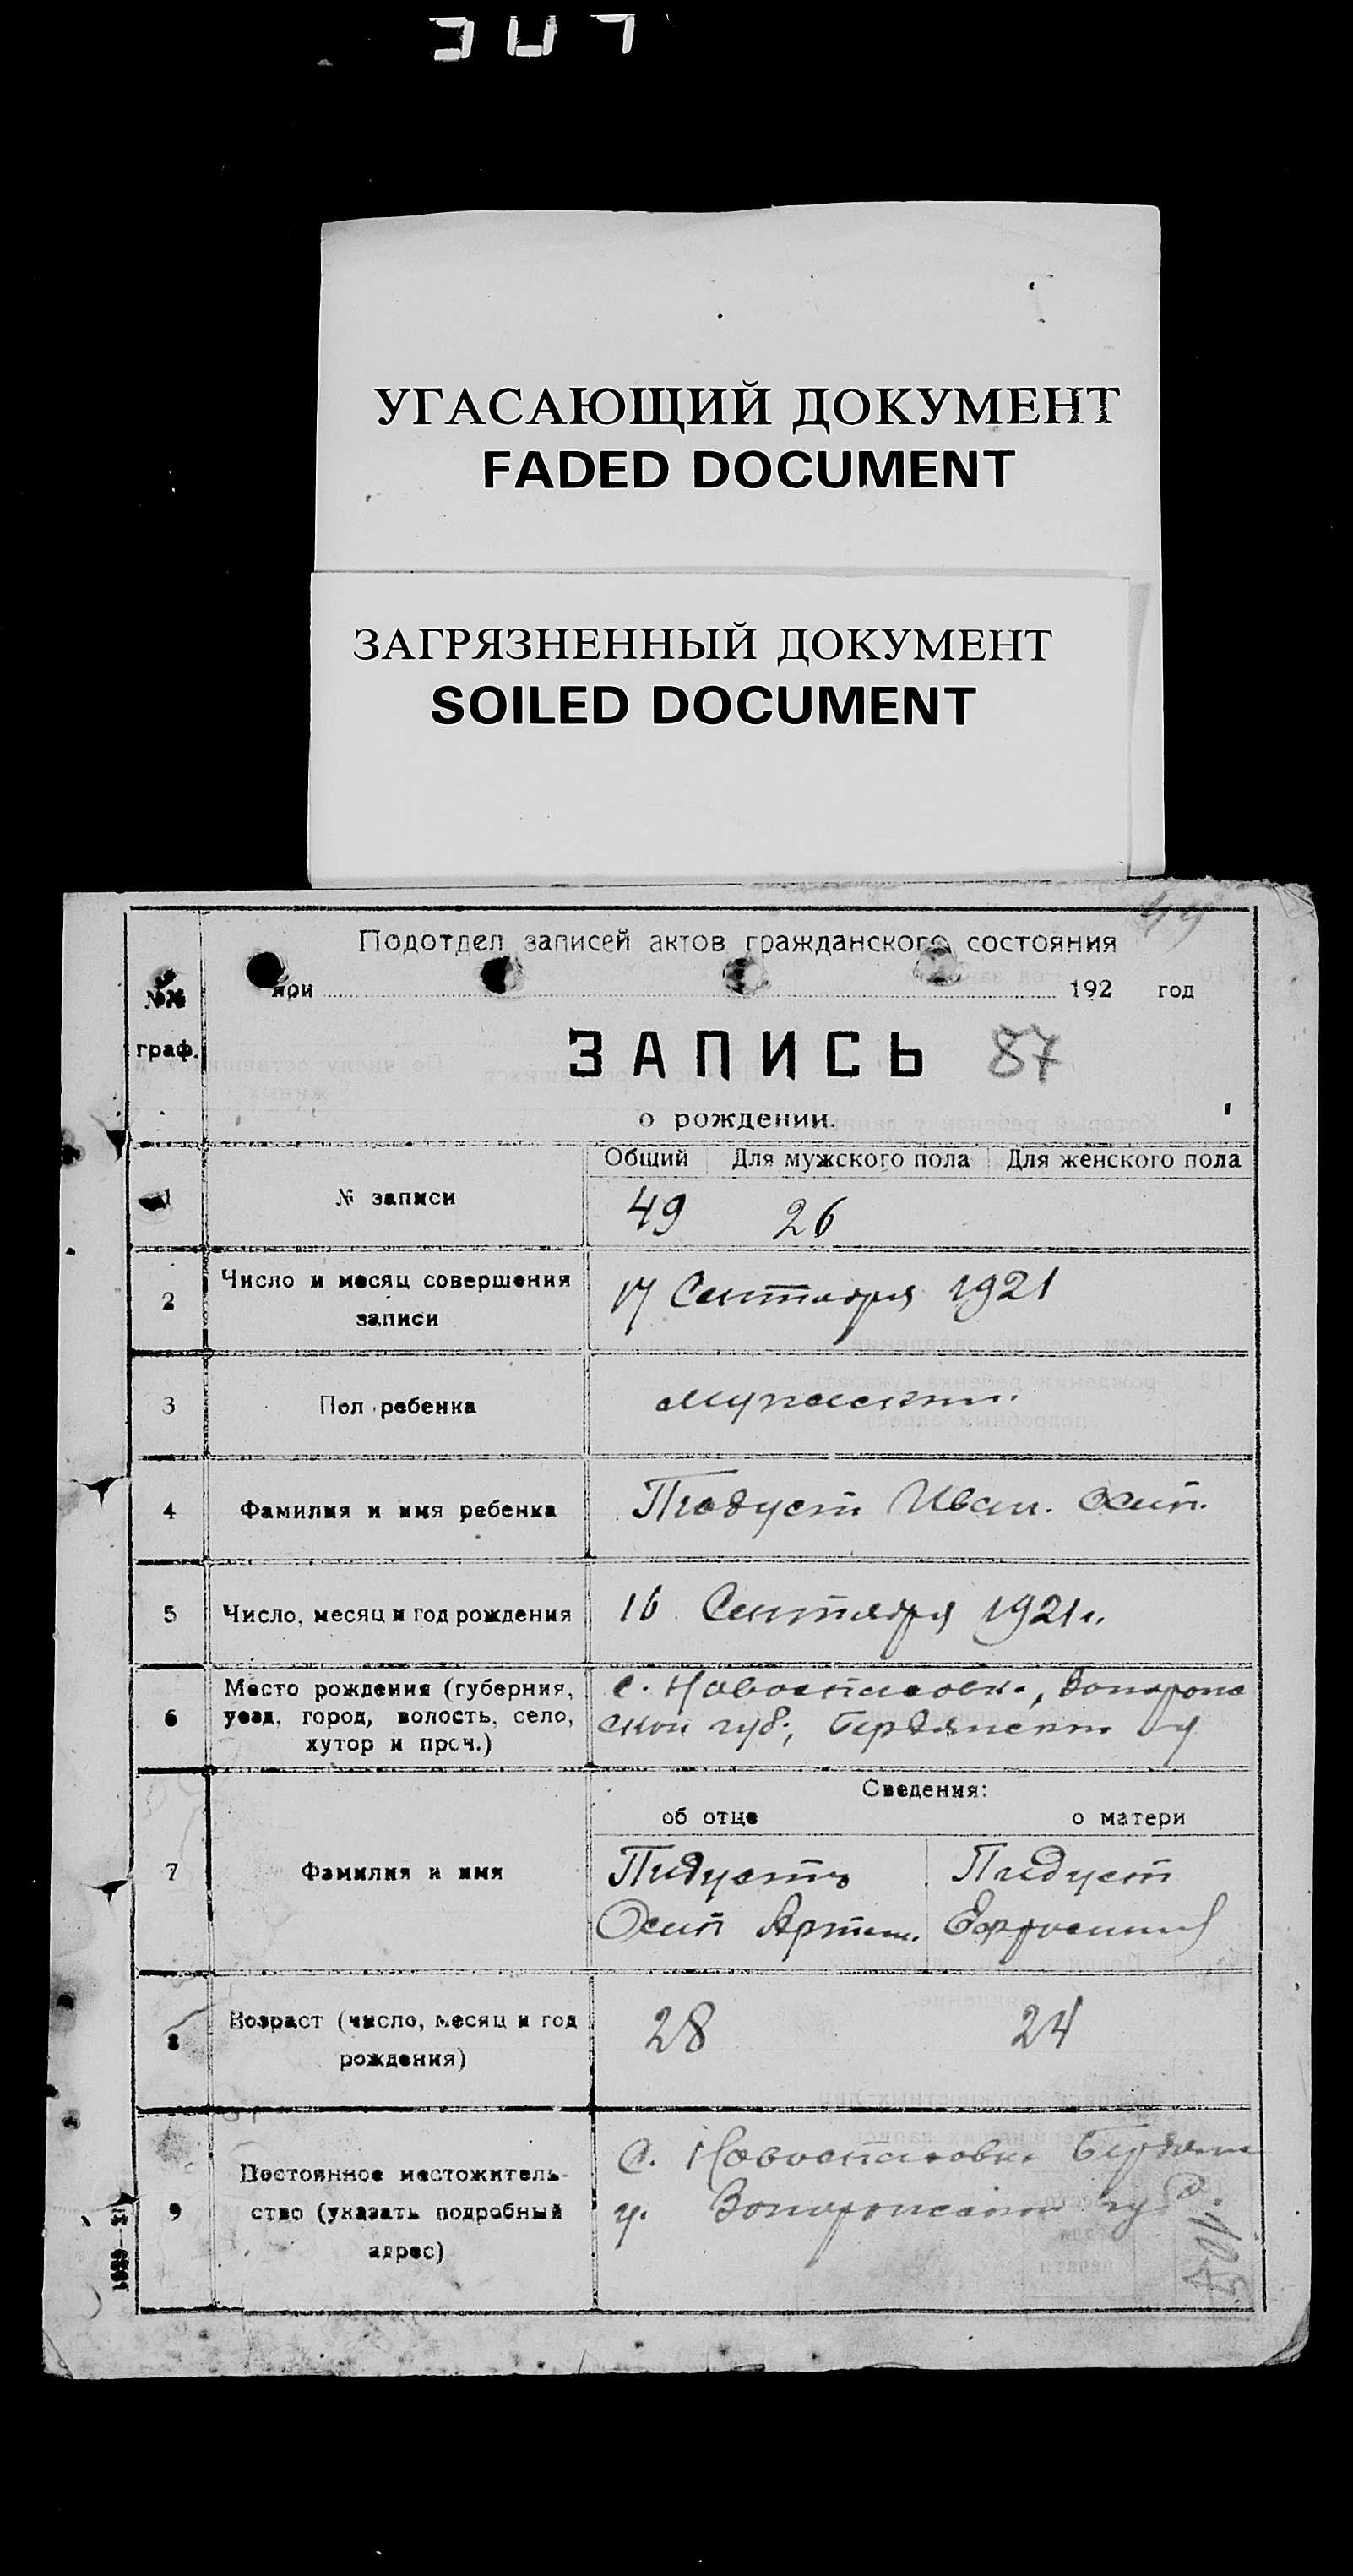 УГАСАЮЩИЙ ДОКУМЕНТ
FADED DOCUMENT
ЗАГРЯЗНЕННЫЙ ДОКУМЕНТ
SOILED DOCUMENT
Подотдел записей актов гражданского состояния
№№ при 192 год
граф. ЗАПИСЬ 87
о рождении.
Общий Для мужского пола Для женского пола
1 № записи 49 26
2 Число и месяц совершения записи 17 Сентября 1921
3 Пол ребенка мужской.
4 Фамилия и имя ребенка Пидуст Иван. Осип.
5 Число, месяц и год рождения 16 Сентября 1921 г.
6 Место рождения (губерния,
уезд, город, волость, село,
хутор и проч.)
с. Новоспасовка, Запорож
ской губ., Бердянского у
Сведения:
об отце о матери
7 Фамилия и имя
Пидустъ Пидуст
Осип Артем. Ефросиния
8 Возраст (число, месяц и год
рождения)
28 24
9 Постоянное местожитель-
ство (указать подробный
адрес)
С. Новоспасовка Бердян
у. Запорожской губ.